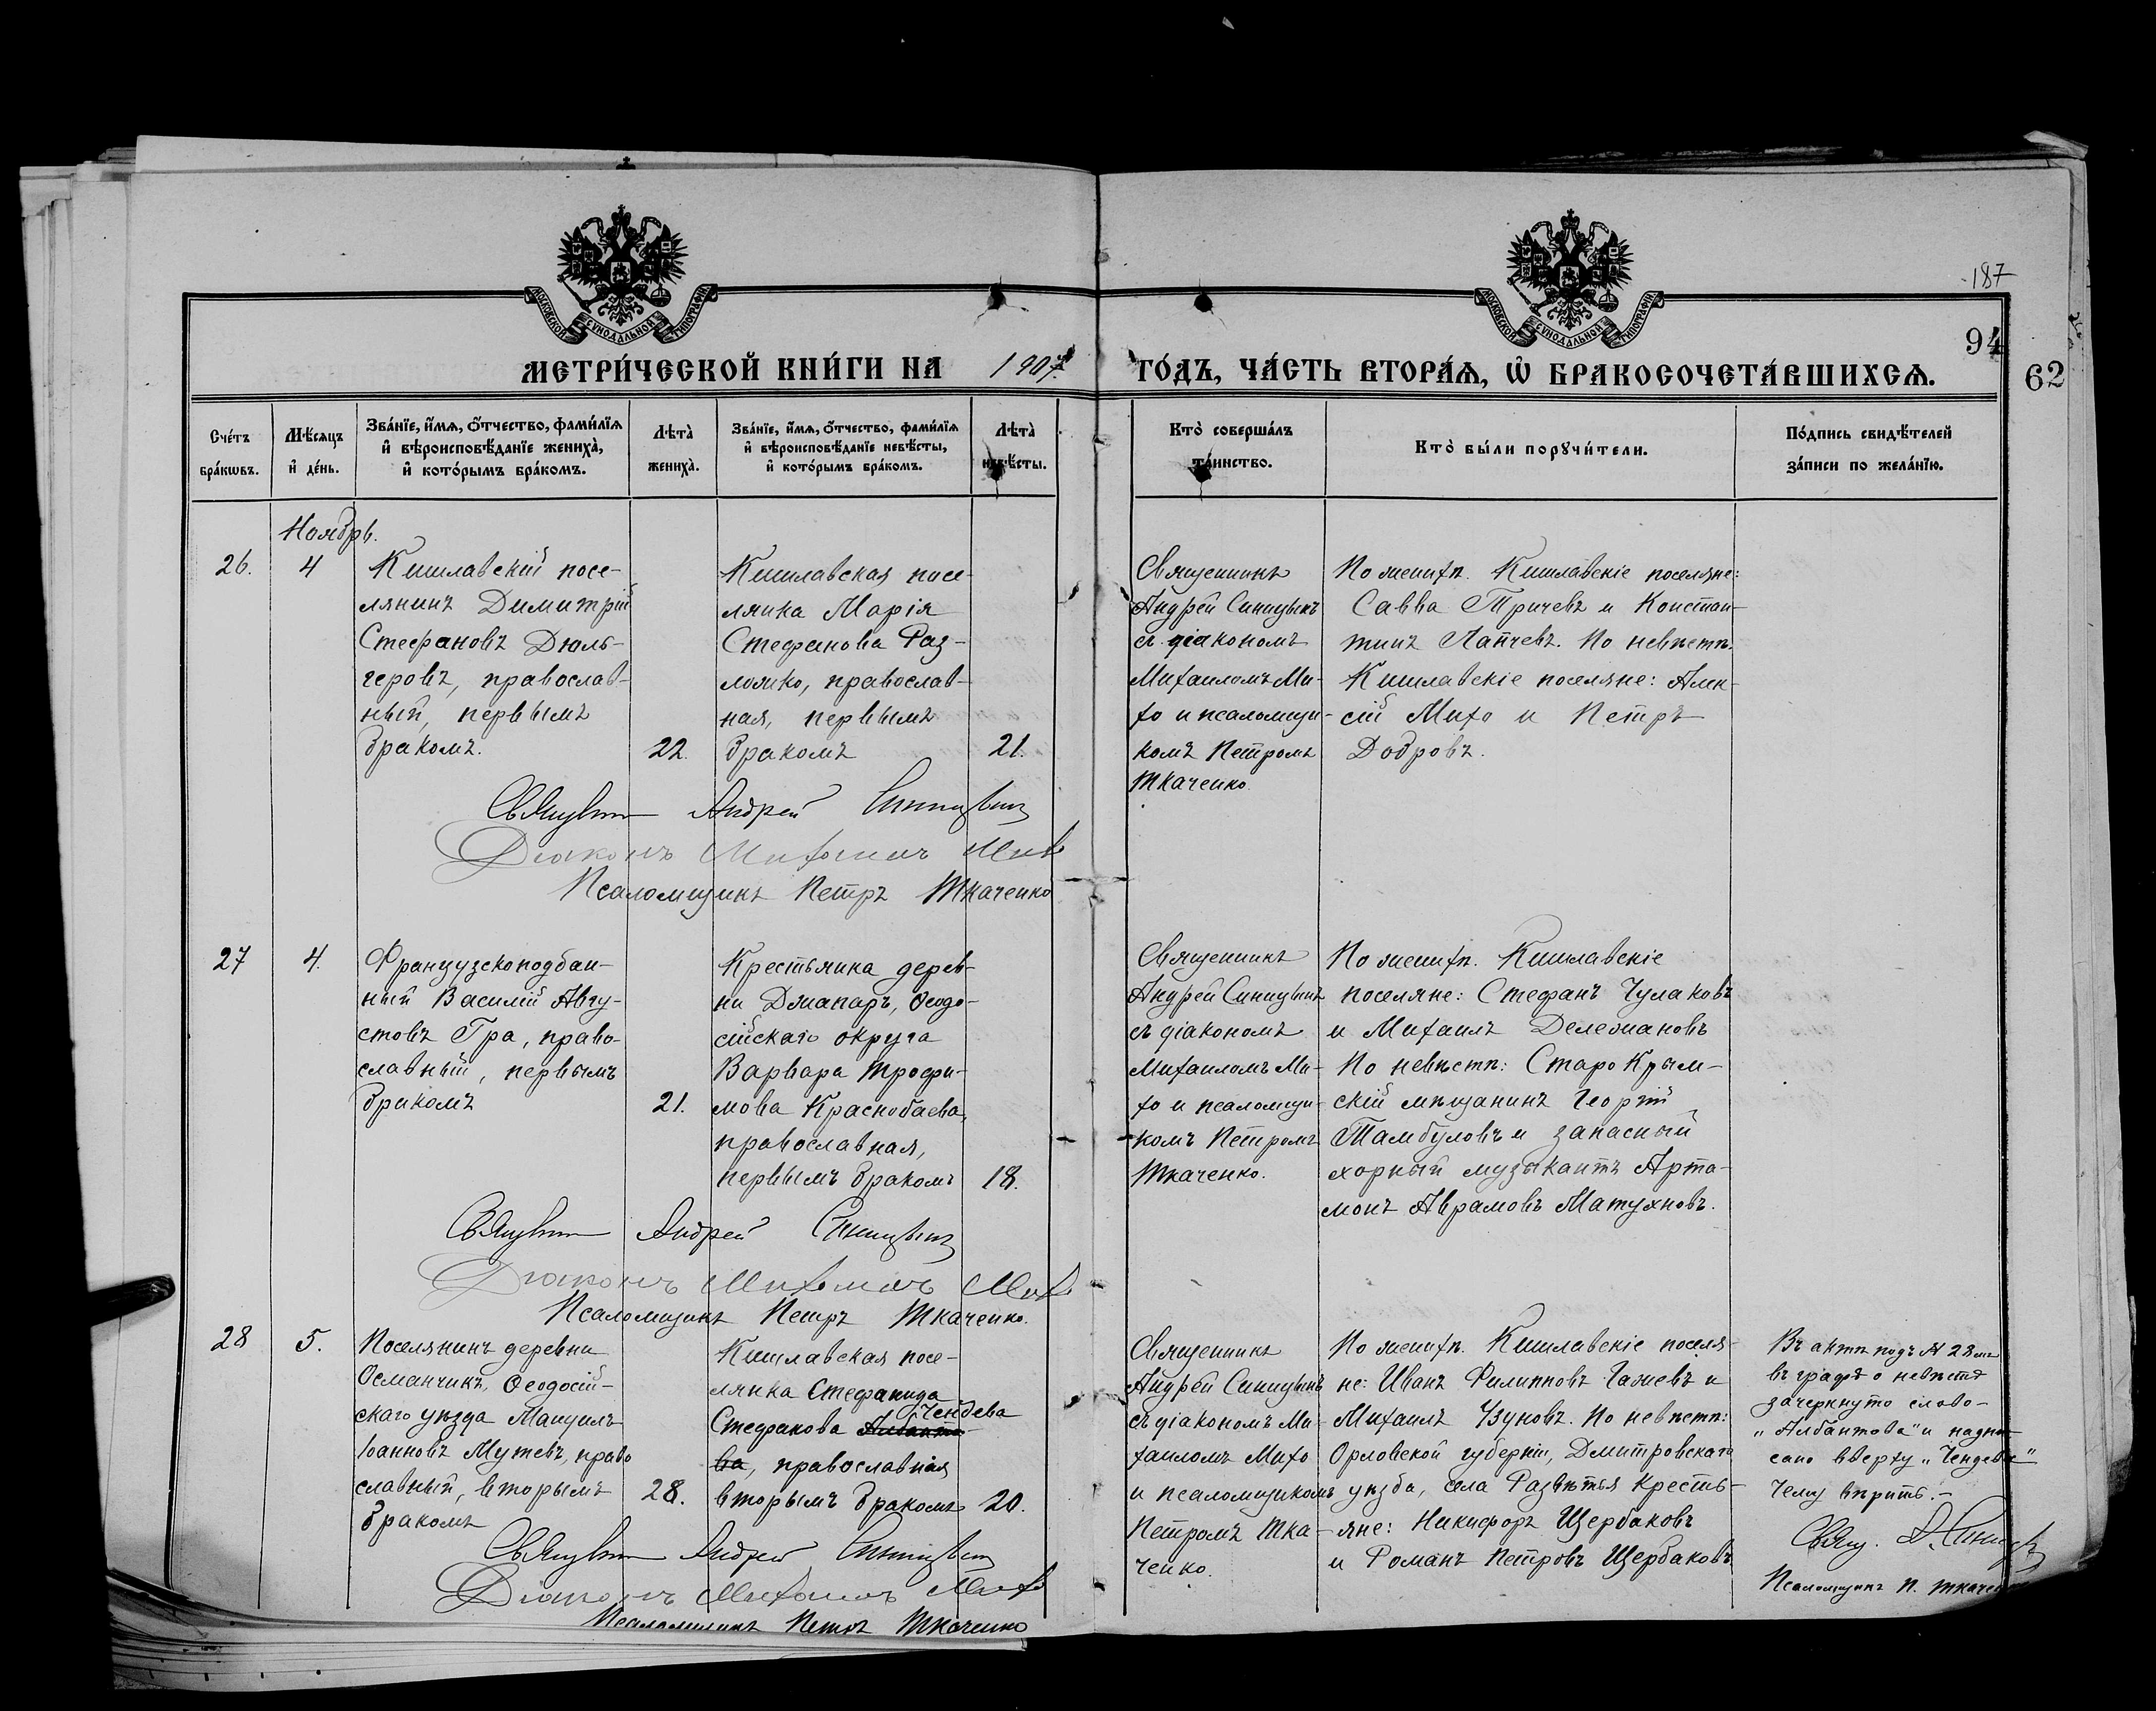 МОСКОВСКОЙ СѴНОДАЛЬНОЙ ТИПОГРАФІИ
МОСКОВСКОЙ СѴНОДАЛЬНОЙ ТИПОГРАФІИ
187
94
62
МЕТРИ́ЧЕСКОЙ КНИ́ГИ НА 1907
ГО́ДЪ, ЧА́СТЬ ВТОРА́Ѧ, Ѽ БРАКОСОЧЕТА́ВШИХСѦ.
Сче́тъ бра́кѡвъ.
Мѣ́сѧцъ и҆ де́нь.
Зва́нїе, и҆́мѧ, ѻ҆́тчество, фами́лїѧ
и҆ вѣроисповѣ́данїе жениха̀,
и҆ кото́рымъ бра́комъ.
Лѣта̀ жениха̀.
Зва́нїе, и҆́мѧ, ѻ҆́тчество, фами́лїѧ
и҆ вѣроисповѣ́данїе невѣ́сты,
и҆ кото́рымъ бра́комъ.
Лѣта̀ невѣ́сты.
Кто̀ соверша́лъ та́инство.
Кто̀ бы́ли порꙋчи́тели.
По́дпись свидѣ́телей за́писи по жела́нїю.
Ноябрь.
26.
4
Кишлавскій посе-
лянинъ Димитрій
Стефановъ Дюль-
геровъ, православ-
ный, первымъ
бракомъ.
22.
Кишлавская посе-
лянка Марія
Стефанова Раз-
ложко, православ-
ная, первымъ
бракомъ
21.
Священникъ
Андрей Синицынъ
съ діакономъ
Михаиломъ Ми-
хо и псаломщи-
комъ Петромъ
Ткаченко.
По женихѣ. Кишлавскіе поселяне:
Савва Тричевъ и Констан-
тинъ Лапчевъ. По невѣстѣ.
Кишлавскіе поселяне: Алек-
сій Михо и Петръ
Добровъ.
Священникъ Андрей Синицынъ
Діаконъ Михаилъ Михо
Псаломщикъ Петръ Ткаченко
27
4.
Французскоподдан-
ный Василій Авгу-
стовъ Гра, право-
славный, первымъ
бракомъ
21.
Крестьянка дерев-
ни Джапаръ, Ѳеодо-
сійскаго округа
Варвара Трофи-
мова Краснобаева,
православная,
первымъ бракомъ
18.
Священникъ
Андрей Синицынъ
съ діакономъ
Михаиломъ Ми-
хо и псаломщи-
комъ Петромъ
Ткаченко.
По женихѣ. Кишлавскіе
поселяне: Стефанъ Чулаковъ
и Михаилъ Дележановъ
По невѣстѣ: Старо Крым-
скій мѣщанинъ Георгій
Тамбуловъ и запасный
хорный музыкантъ Арта-
монъ Аврамовъ Матухновъ.
Священникъ Андрей Синицынъ
Діаконъ Михаилъ Михо
Псаломщикъ Петръ Ткаченко.
28
5.
Поселянинъ деревни
Османчикъ, Ѳеодосій-
скаго уѣзда Мануилъ
Іоанновъ Мутевъ, право
славный, вторымъ
бракомъ
28.
Кишлавская посе-
лянка Стефанида
Чендева
Стефанова Албанто-
ва, православная
вторымъ бракомъ
20.
Священникъ
Андрей Синицынъ
съ діакономъ Ми-
хаиломъ Михо
и псаломщикомъ
Петромъ Тка-
ченко.
По женихѣ. Кишлавскіе поселя-
не: Иванъ Филипповъ Гажевъ и
Михаилъ Узуновъ. По невѣстѣ:
Орловской губерніи, Дмитровскаго
уѣзда, села Развѣтья кресть-
яне: Никифоръ Щербаковъ
и Романъ Петровъ Щербаковъ
Въ актѣ подъ № 28мъ
въ графѣ о невѣстѣ
зачеркнуто слово-
„Албантова" и надпи-
сано вверху „Чендева"
Чему вѣрить.-
Свящ. А. Синицынъ
Псаломщикъ П. Ткаченко
Священникъ Андрей Синицынъ
Діаконъ Михаилъ Михо
Псаломщикъ Петръ Ткаченко